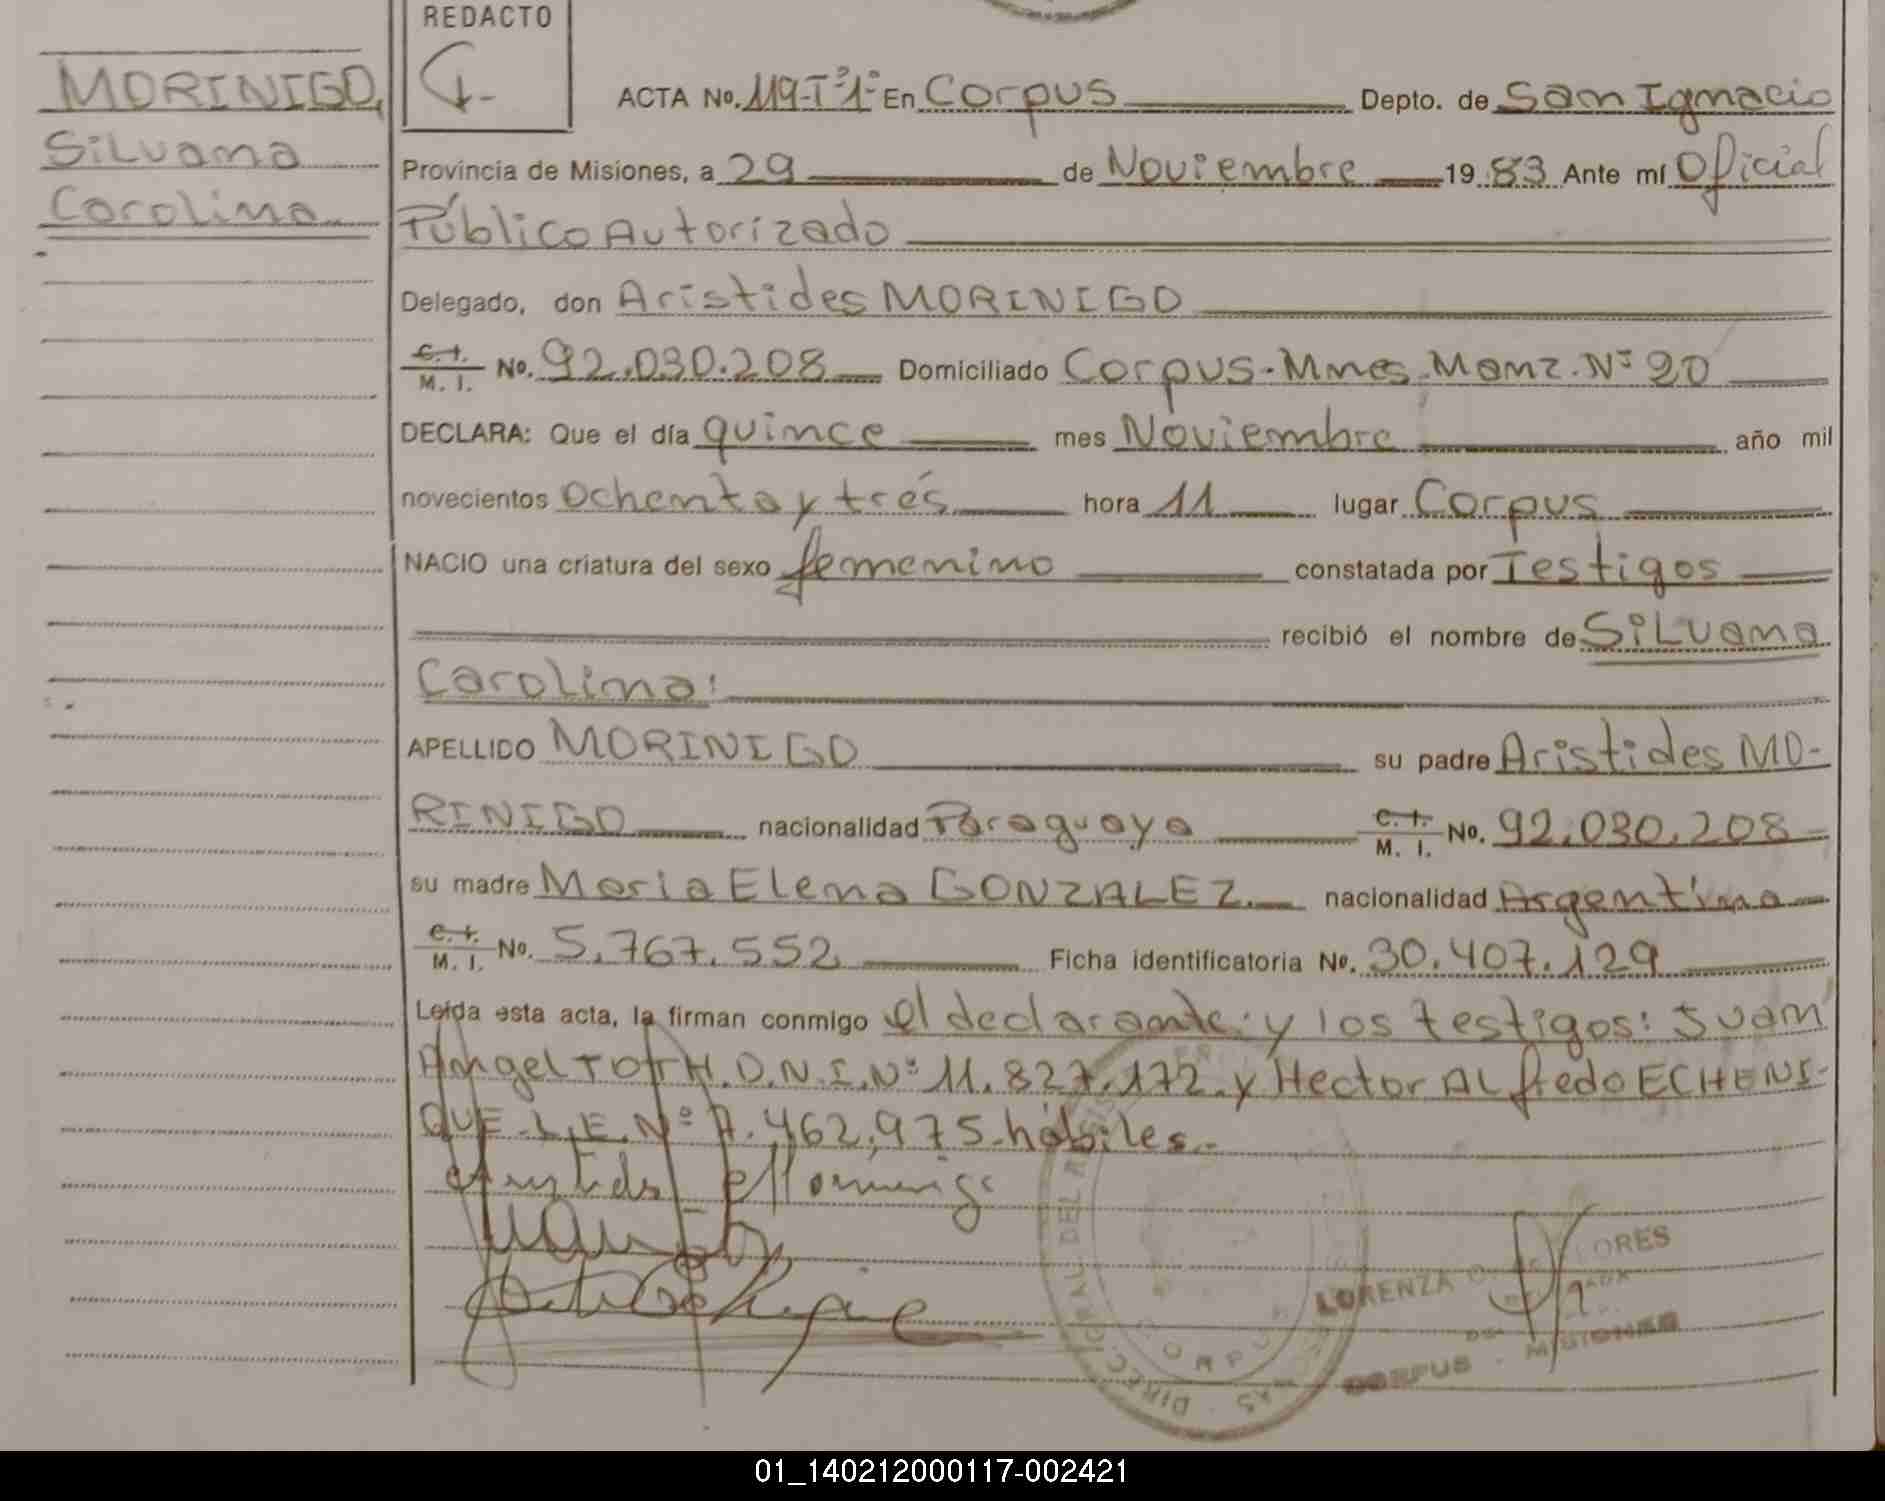 REDACTO
MORINIGO,
Silvana
Carolina
ACTA No. 119-T°1° En Corpus Depto. de San Ignacio
Provincia de Misiones, a 29 de Noviembre 19 83 Ante mí Oficial
Público Autorizado
Delegado, don Aristides MORINIGO
C.I. / M. I. No. 92.030.208 Domiciliado Corpus-Mnes.Manz.N° 20
DECLARA: Que el día quince mes Noviembre año mil
novecientos ochenta y trés hora 11 lugar Corpus
NACIO una criatura del sexo femenino constatada por Testigos
recibió el nombre de Silvana
Carolina:
APELLIDO MORINIGO su padre Aristides MO-
RINIGO nacionalidad Paraguaya C.I. / M. I. No. 92.030.208
su madre Maria Elena GONZALEZ. nacionalidad Argentina
C.I. / M. I. No. 5.767.552 Ficha identificatoria No. 30.407.129
Leída esta acta, la firman conmigo el declarante y los testigos: Juan
Angel TOTH.D.N.I.N° 11.827.172.y Hector Alfredo ECHENI-
QUE-L.E.N° 7.462.975-hábiles.-
Aristides Morinigo
LORENZA FLORES
CORPUS - MISIONES
CORPUS
01_140212000117-002421